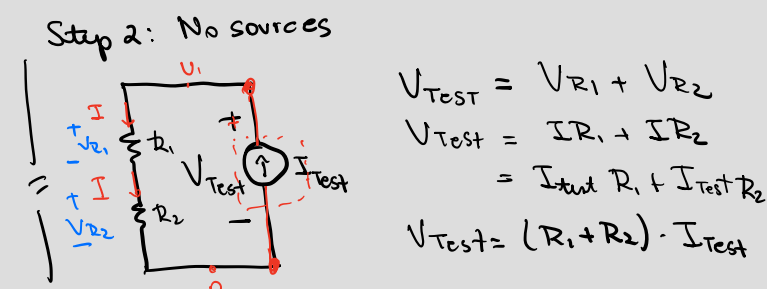 Step 2: No sources
V₁
I
+
V_R₁
-
R₁
+
V_Test
-
I_Test
=
I
+
V_R₂
-
R₂
V_Test = V_R₁ + V_R₂
V_Test = IR₁ + IR₂
= I_test R₁ + I_Test R₂
V_Test = (R₁+R₂) · I_Test